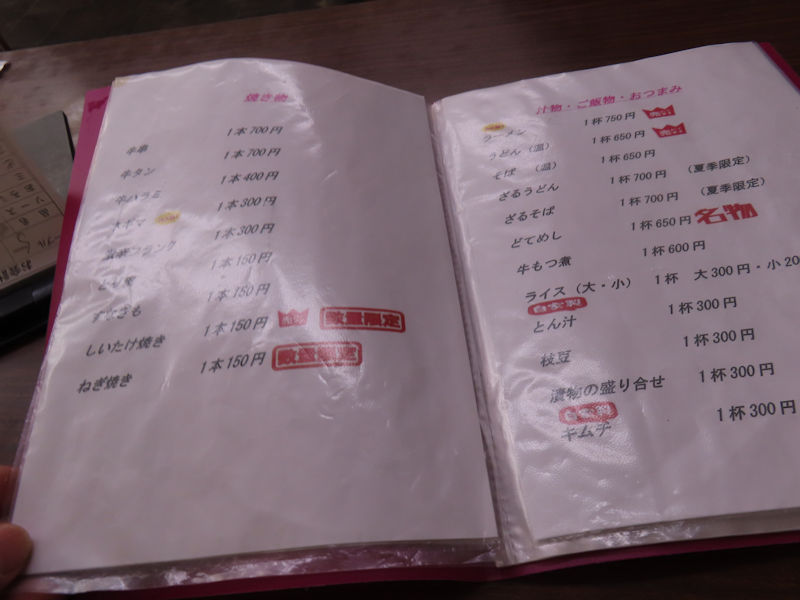 焼き物
牛串 1本700円
牛タン 1本700円
牛ハラミ 1本400円
大ギモ 1本300円
フランク 1本300円
1本150円
すなぎも 1本150円
しいたけ焼き 1本150円 数量限定
ねぎ焼き 1本150円 数量限定
汁物・ご飯物・おつまみ
ラーメン 1杯750円
うどん(温) 1杯650円
そば (温) 1杯650円
ざるうどん 1杯700円 (夏季限定)
ざるそば 1杯700円 (夏季限定)
どてめし 1杯650円 名物
牛もつ煮 1杯600円
ライス(大・小) 1杯 大300円・小20
自家製
とん汁 1杯300円
枝豆 1杯300円
漬物の盛り合せ 1杯300円
自家製
キムチ 1杯300円